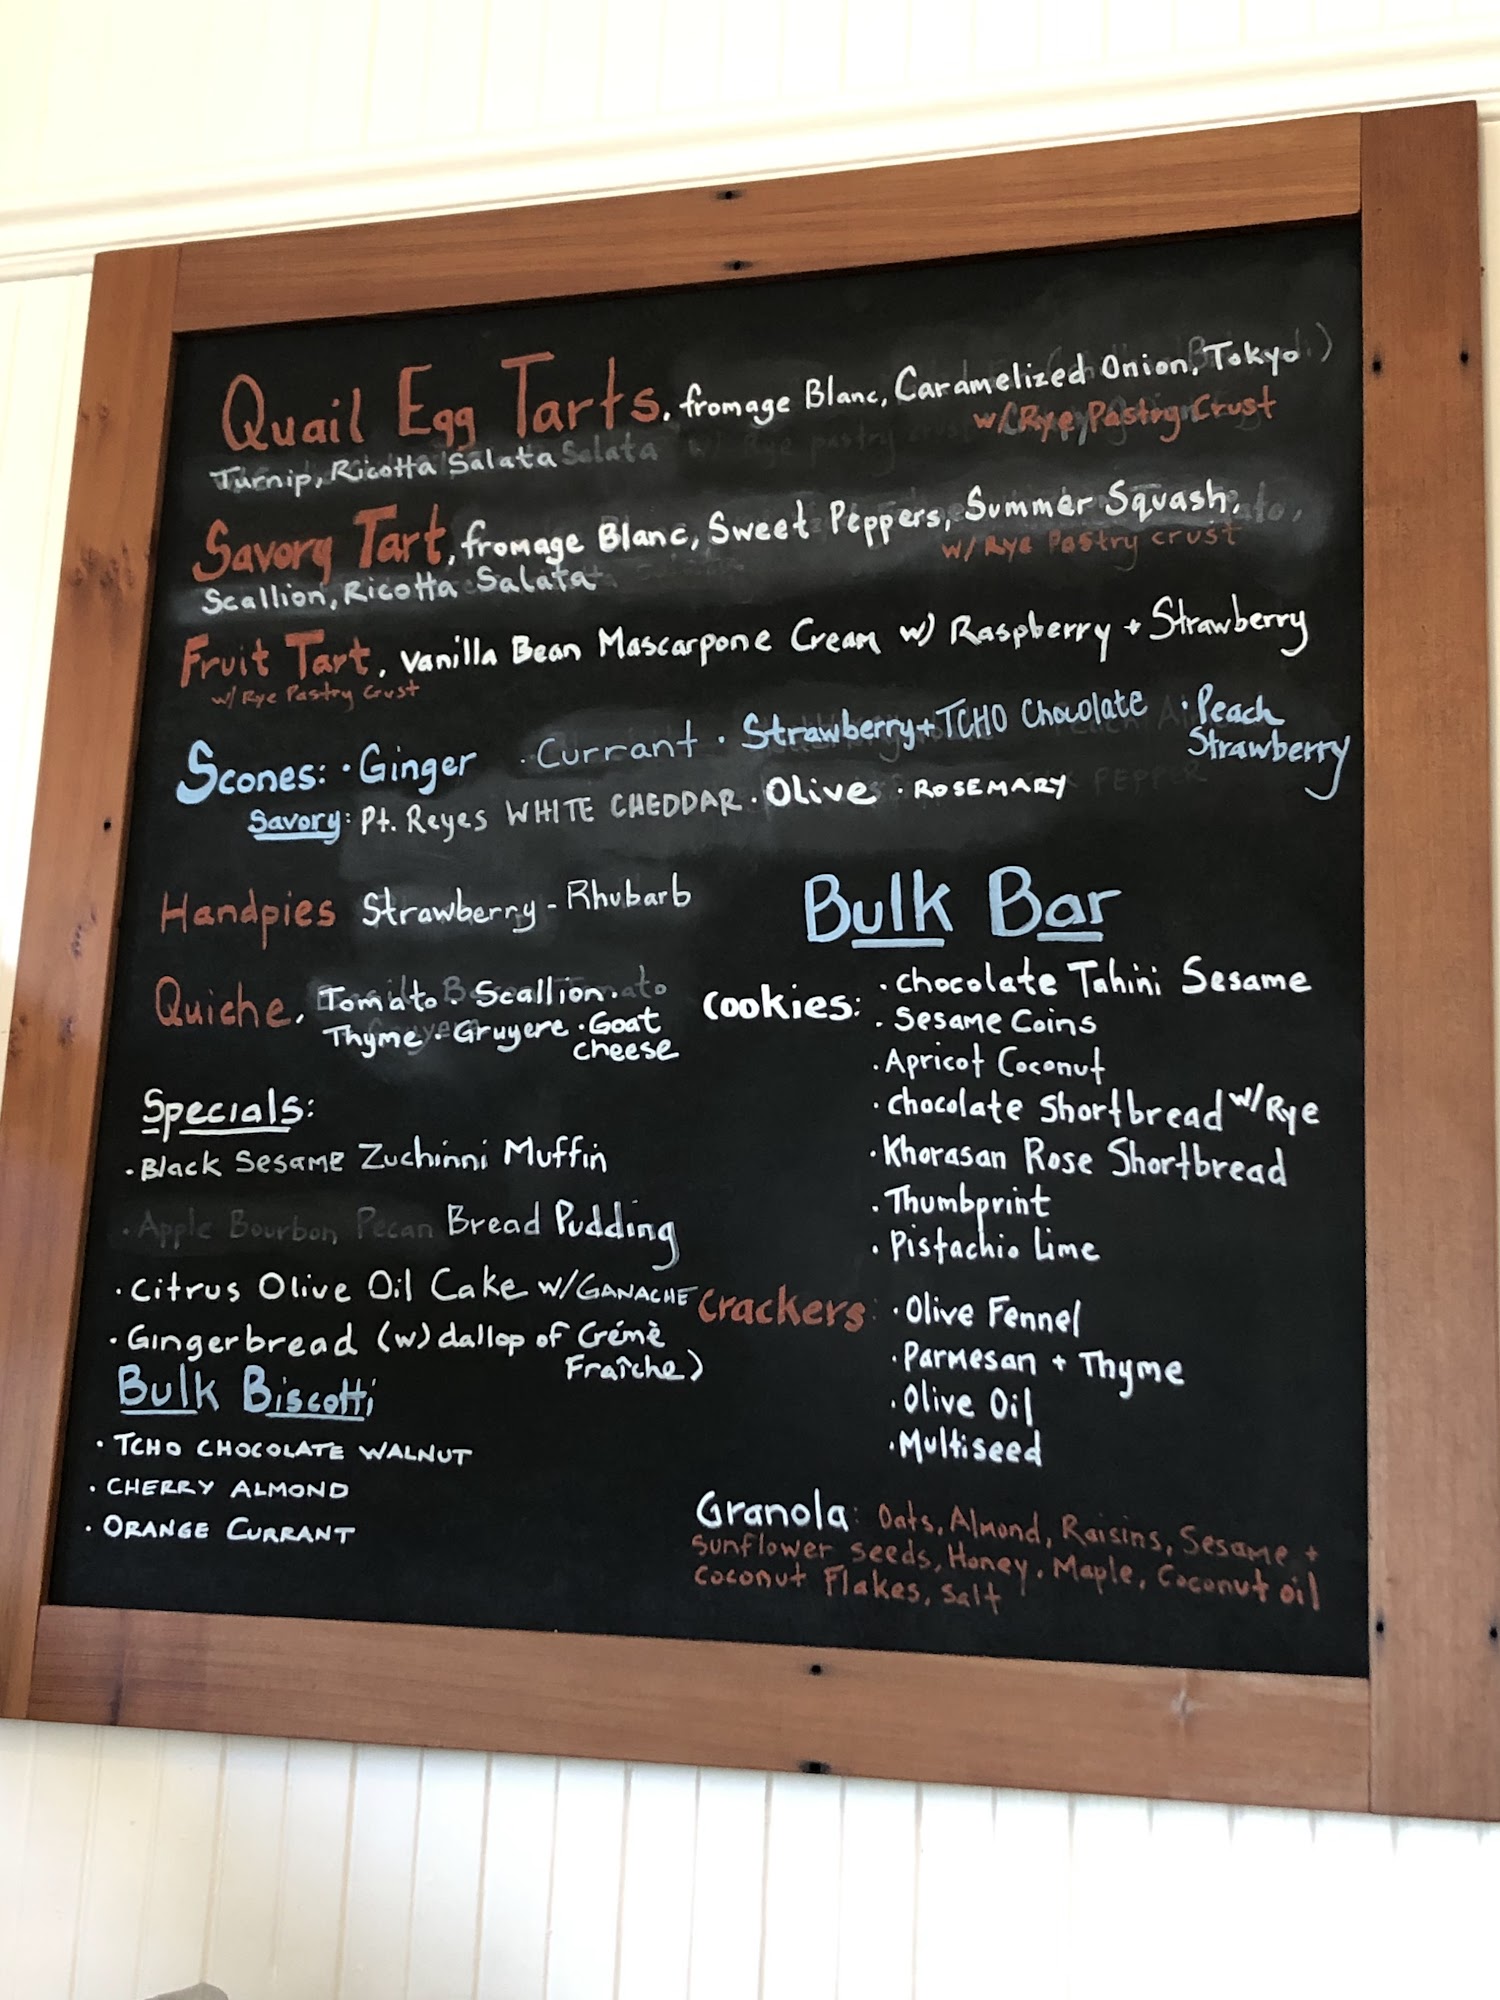 Quail Egg Tarts. fromage Blanc, Caramelized Onion, Tokyo
w/ Rye Pastry Crust
Turnip, Ricotta Salata
Savory Tart, fromage Blanc, Sweet Peppers, Summer Squash,
w/ Rye Pastry crust
Scallion, Ricotta Salata
Fruit Tart, Vanilla Bean Mascarpone Cream w/ Raspberry + Strawberry
w/ Rye Pastry Crust
Scones: · Ginger · Currant · Strawberry + TCHO Chocolate · Peach
Strawberry
Savory: Pt. Reyes WHITE CHEDDAR · Olive · ROSEMARY
Handpies Strawberry - Rhubarb
Quiche, Tomato Scallion ·
Thyme · Gruyere · Goat
cheese
Specials:
· Black Sesame Zuchinni Muffin
· Apple Bourbon Pecan Bread Pudding
· Citrus Olive Oil Cake w/ GANACHE
· Gingerbread (w) dallop of Crémè
Fraîche)
Bulk Biscotti
· TCHO CHOCOLATE WALNUT
· CHERRY ALMOND
· ORANGE CURRANT
Bulk Bar
Cookies: · chocolate Tahini Sesame
· Sesame Coins
· Apricot Coconut
· chocolate Shortbread w/ Rye
· Khorasan Rose Shortbread
· Thumbprint
· Pistachio Lime
Crackers: · Olive Fennel
· Parmesan + Thyme
· Olive Oil
· Multiseed
Granola: Oats, Almond, Raisins, Sesame +
sunflower seeds, Honey, Maple, Coconut oil
coconut Flakes, salt